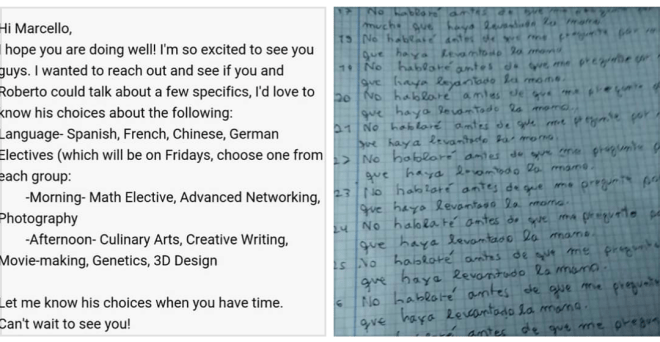 Hi Marcello,
I hope you are doing well! I'm so excited to see you
guys. I wanted to reach out and see if you and
Roberto could talk about a few specifics, I'd love to
know his choices about the following:
Language- Spanish, French, Chinese, German
Electives (which will be on Fridays, choose one from
each group:
-Morning- Math Elective, Advanced Networking,
Photography
-Afternoon- Culinary Arts, Creative Writing,
Movie-making, Genetics, 3D Design
Let me know his choices when you have time.
Can't wait to see you!
No hablaré antes de que me pregunte por
que haya levantado la mano.
19 No hablaré antes de que me pregunte por
que haya levantado la mano.
20 No hablaré antes de que me pregunte
que haya levantado la mano.
21 No hablaré antes de que me pregunte por
que haya levantado la mano.
22 No hablaré antes de que me pregunte p
que haya levantado la mano.
23 No hablaré antes de que me pregunte por
que haya levantado la mano.
24 No hablaré antes de que me pregunte po
que haya levantado la mano.
25 No hablaré antes de que me pregunte
que haya levantado la mano.
6 No hablaré antes de que me pregunte
que haya levantado la mano.
antes de que me pregun